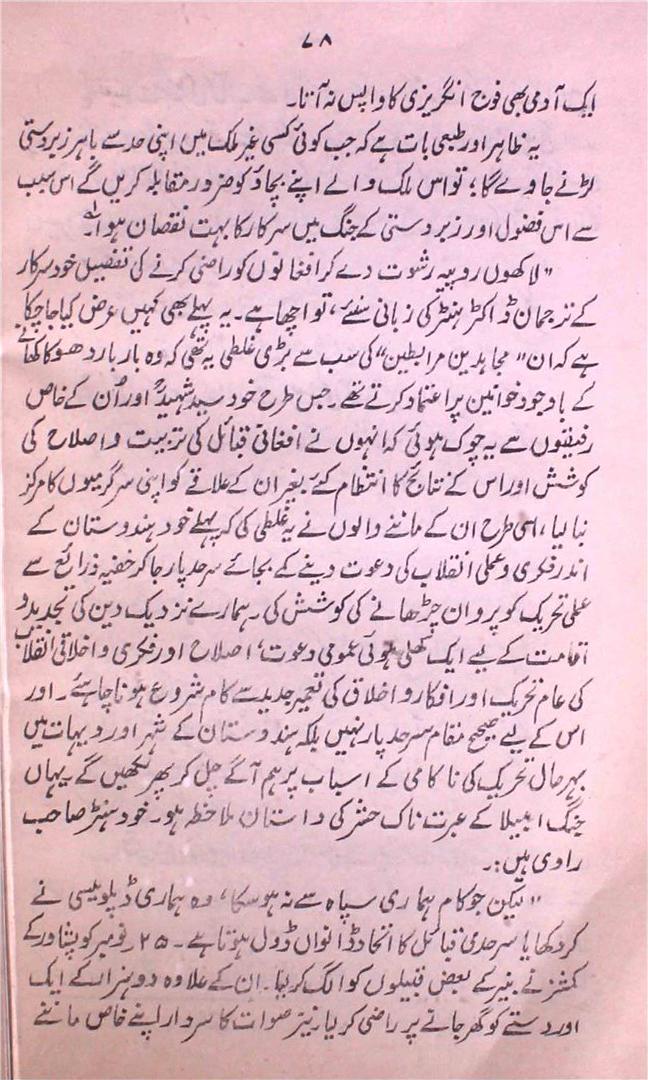 ۷۸
ایک آدمی بھی فوج انگریزی کا واپس نہ آتا۔
یہ ظاہر اور طبعی بات ہے کہ جب کوئی کسی غیر ملک میں اپنی حد سے باہر زبردستی
لڑنے جاوے گا؛ تو اس ملک والے اپنے بچاؤ کو ضرور مقابلہ کریں گے اس سبب
سے اس فضول اور زبردستی کے جنگ میں سرکار کا بہت نقصان ہوا۔
"لاکھوں روپیہ رشوت دے کر افغانوں کو راضی کرنے کی تفصیل خود سرکار
کے ترجمان ڈاکٹر ہنٹر کی زبانی سنئے، تو اچھا ہے۔ یہ پہلے بھی کہیں عرض کیا جا چکا
ہے کہ ان "مجاہدین مرابطین" کی سب سے بڑی غلطی یہ تھی کہ وہ بار بار دھوکا کھانے
کے باوجود خوانین پر اعتماد کرتے تھے۔ جس طرح خود سید شہیدؒ اور اُن کے خاص
رفیقوں سے یہ چوک ہوئی کہ انہوں نے افغانی قبائل کی تربیت و اصلاح کی
کوشش اور اس کے نتائج کا انتظام کئے بغیر ان کے علاقے کو اپنی سرگرمیوں کا مرکز
بنا لیا، اسی طرح ان کے ماننے والوں نے یہ غلطی کی کہ پہلے خود ہندوستان کے
اندر فکری و عملی انقلاب کی دعوت دینے کے بجائے سرحد پار جا کر خفیہ ذرائع سے
عملی تحریک کو پروان چڑھانے کی کوشش کی۔ ہمارے نزدیک دین کی تجدید و
اقامت کے لیے ایک کھلی ہوئی عمومی دعوت، اصلاح اور فکری و اخلاقی انقلاب
کی عام تحریک اور افکار و اخلاق کی تعمیر جدید سے کام شروع ہونا چاہئے۔ اور
اس کے لیے صحیح مقام سرحد پار نہیں بلکہ ہندوستان کے شہر اور دیہات ہیں
بہرحال تحریک کی ناکامی کے اسباب پر ہم آگے چل کر پھر لکھیں گے۔ یہاں
جنگ امبیلا کے عبرت ناک حشر کی داستان ملاحظہ ہو۔ خود ہنٹر صاحب
راوی ہیں:۔
"لیکن جو کام ہماری سپاہ سے نہ ہو سکا، وہ ہماری ڈپلومیسی نے
کر دکھایا سرحدی قبائل کا اتحاد ڈانواں ڈول ہوتا ہے۔ ۲۵ نومبر کو پشاور کے
کمشنر نے بنیر کے بعض قبیلوں کو الگ کر لیا۔ ان کے علاوہ دو ہزار کے ایک
اور دستے کو گھر جانے پر راضی کر لیا۔ نیز صوات کا سردار اپنے خاص ماننے